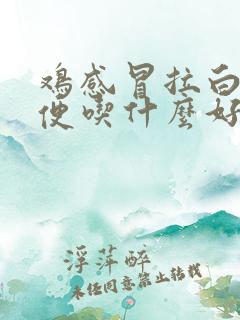 鸡感冒拉白
便喫什麽好
浮萍醉
未经同意禁止转载